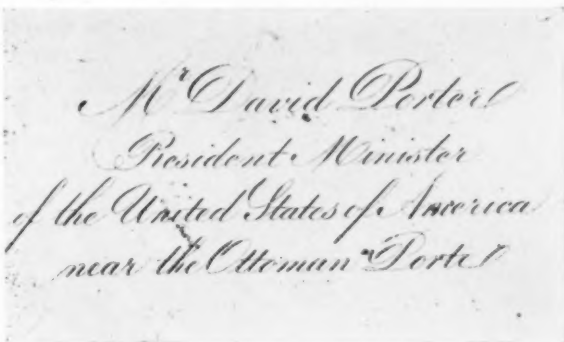 Mr David Porter
President Minister
of the United States of America
near the Ottoman Porte